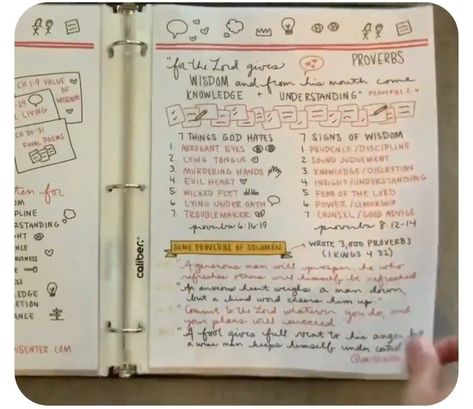 CH 1-9 VALUE
OF
WISDOM
LIVING
CH 30-31
FINAL POEMS
for
caliber.
PROVERBS
"for the Lord gives
WISDOM and from his mouth come
KNOWLEDGE + UNDERSTANDING"
7 THINGS GOD HATES
1. ARROGANT EYES
2. LYING TONGUE
3. MURDERING HANDS
4. EVIL HEART
5. WICKED FEET
6. LYING UNDER OATH
7. TROUBLEMAKER
proverbs 6:16-19
7 SIGNS OF WISDOM
1. PRUDENCE/DISCIPLINE
2. SOUND JUDGEMENT
3. KNOWLEDGE/DISCRETION
4. INSIGHT/UNDERSTANDING
5. FEAR OF THE LORD
6. POWER/LEADERSHIP
7. COUNSEL/GOOD ADVICE
proverbs 8:12-14
SOME PROVERBS OF SOLOMON
WROTE 3,000 PROVERBS
(1 KINGS 4:32)
"A generous man will prosper, he who
refreshes others will himself be refreshed
"An anxious heart weighs a man down
but a kind word cheers him up."
"Commit to the Lord whatever you do, and
your plans will succeed."
"A fool gives full vent to his anger but
a wise man keeps himself under control